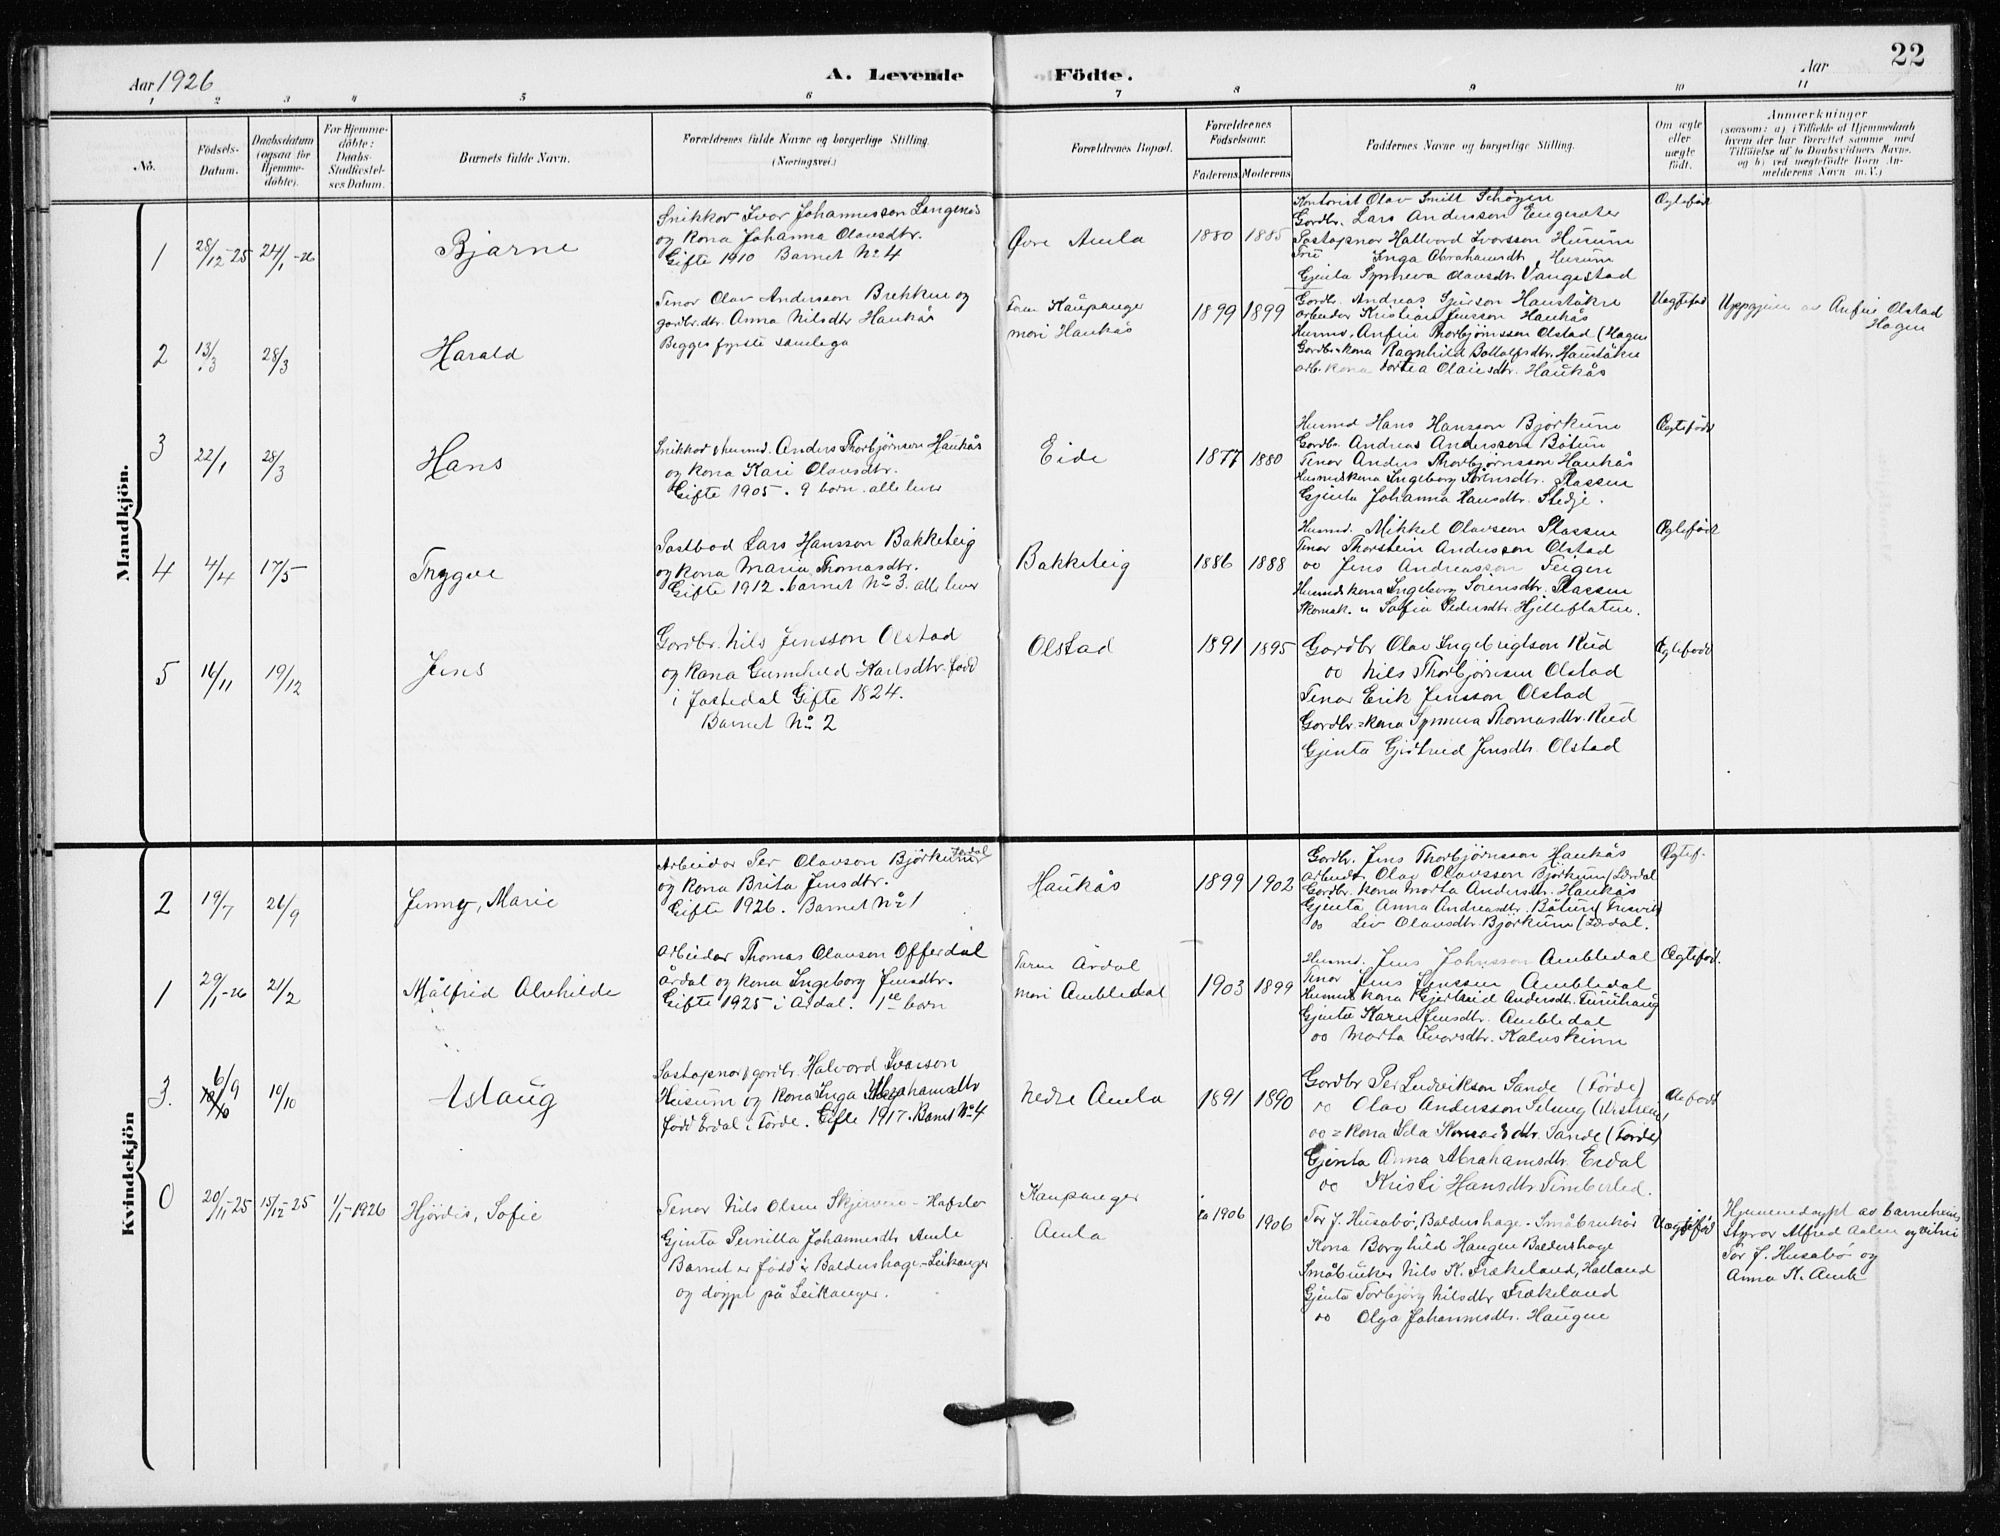 22
Aar 1926
A. Levende Födte.
Aar
1 2 3 4 5 6 7 8 9 10 11
No.
Födsels-Datum.
Daabsdatum (ogsaa for Hjemmedøbte).
For Hjemmedøbte: Daabs-Stadfæstelses Datum.
Barnets fulde Navn.
Forældrenes fulde Navne og borgerlige Stilling. (Næringsvei.)
Forældrenes Bopæl.
Forældrenes Fødselsaar.
Faderens. Moderens.
Faddernes Navne og borgerlige Stilling.
Om ægte eller uægte født.
Anmærkninger
(saasom: a) i Tilfælde af Hjemmedaab
hvem der har forrettet samme med
Tilføielse af to Daabsvidners Navne,
og b) ved uægtefødte Børn An-
melderens Navn m. V.)
Mandkjön.
1 28/12-25 24/1-26 Bjarne
Snikkar Ivar Johannesson Langenes
og kona Johanna Olavsdtr.
Gifte 1910 Barnet No 4
Øvre Amla 1880 1885
Kontorist Olav Smitt Schøyen
Gardbr. Lars Andersson Engesæter
Postopnar Hallvard Ivarsson Husum
Fru Inga Abrahamsdtr Husum
Gjenta Synneva Olavsdtr Vangestad
Ægtefød
2 13/3 28/3 Harald
Tenar Olav Andersson Brekken og
gardbr.dtr. Anna Nilsdtr Haukås
Begges fyrste samlega
Faren Kaupanger
mori Haukås
1899 1899
Gardbr. Andreas Sjurson Hauståkre
Arbeidar Kristian Jensson Haukås
Husmd. Anfin Thorbjørnsson Olstad (Hagen
Gardbr-kona Ragnhild Botolfsdtr. Hauståkre
arb. kona Dortea Olaisdtr. Haukås
Uægtefød
Uppgjeve av Anfin Olstad
Hagen
3 22/1 28/3 Hans
Snikkar & husmd. Anders Thorbjørnson Haukås
og kona Kari Olavsdtr.
Gifte 1905. 9 born. alle lever
Eide 1877 1880
Husmd Hans Hansson Bjørkum
Gardbr. Andreas Andersson Båtun
Tenar Anders Thorbjørnsson Haukås
Husmdskona Ingeborg Sørensdtr. Plassen
Gjenta Johanna Hansdtr. Stedje.
Ægtefødd
4 4/4 17/5 Trygve
Postbod Lars Hansson Bakketeig
og kona Maria Thomasdtr.
Gifte 1912. barnet No 3. alle lever
Bakketeig 1886 1888
Husmd. Mikkel Olavsson Plassen
Tenar Thorstein Andersson Olstad
oo Jens Andreasson Teigen
Husmdskona Ingeborg Sørensdtr. Plassen
Skomak. " Sofia Pedersdtr. Hjelleflaten.
Ægtefødt
5 16/11 19/12 Jens
Gardbr. Nils Jensson Olstad
og kona Gunnhild Karlsdtr. født
i Jostedal Gifte 1824.
Barnet No 2
Olstad 1891 1895
Gardbr Olav Ingebrigtson Rud
oo Nils Thorbjørnsen Olstad
Tenar Erik Jensson Olstad
Gardbr=kona Synneva Thomasdtr. Rud
Gjenta Gjertrud Jensdtr. Olstad
Ægtefødd
Kvindekjön
2 19/7 26/9 Jenny, Marie
Arbeidar Per Olavson Bjørkum
og kona Brita Jensdtr.
Gifte 1926. Barnet No 1
Haukås 1899 1902
Gardbr. Jens Thorbjørnsson Haukås
Arbeidr Olav Olavsson Bjørkum (Lærdal
Gardbr. kona Marta Andersdtr. Haukås
Gjenta Anna Andreasdtr. Båtun
oo Liv Olavsdtr Bjørkum (Lærdal.
Ægtef.
1 29/1-26 21/2 Målfrid Alvhilde
Arbeidar Thomas Olavson Offerdal
Årdal og kona Ingeborg Jensdtr.
Gifte 1925 i Årdal. 1ste born
Faren Årdal
mori Ambledal
1903 1899
Husmd. Jens Johnsson Ambledal
Tenar Jens Jensson Ambledal
Husmds kona Gjertrud Andersdtr. Furuhaug
Gjenta Karen Jensdtr. Ambledal
oo Marta Ivarsdtr. Kalvskinn
Ægtefød.
3. 6/9 19/10 Aslaug
Postopnar & gardbr. Halvard Ivarson
Husum og kona Inga Abrahamsdtr
født Erdal i Førde. Gifte 1917. Barnet No 4
Nedre Amla 1891 1890
Gardbr Per Ludvikson Sande (Førde)
oo Olav Andersson Selseng
oo = kona Ida Konradsdtr. Sande (Førde)
Gjenta Anna Abrahamsdtr. Erdal
oo Kristi Hansdtr Timberlid.
Æ født
0 20/11-25 15/12-25 1/1-1926 Hjørdis, Sofie
Tenar Nils Olsen Skjerven - Hafslo
Gjenta Pernilla Johannesdtr Amle
Barnet er født i Baldershage-Leikanger
og døypt på Leikanger.
Kaupanger
Amla
ca 1906 1906
Tor J. Husabø, Baldershage-Småbrukar
Kona Borghild Haugen Baldershage
Småbruker Nils K. Frækaland, Halland
Gjenta Torbjørg Nilsdtr Frækeland
oo Olga Johannesdtr. Haugen
Uægtefød
Hjemmedøypt av barneheims
styrar Alfred Aalen og vitni
Tor J. Husabø og
Anna K. Amle